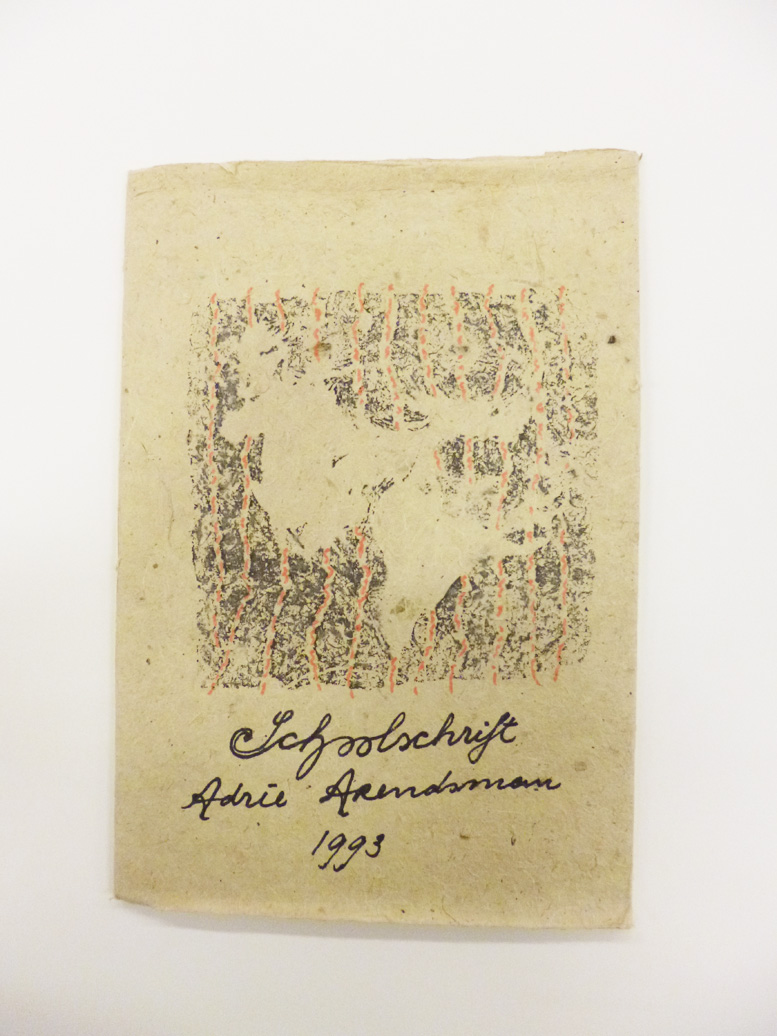 Schoolschrift
Adrie Arendsman
1993